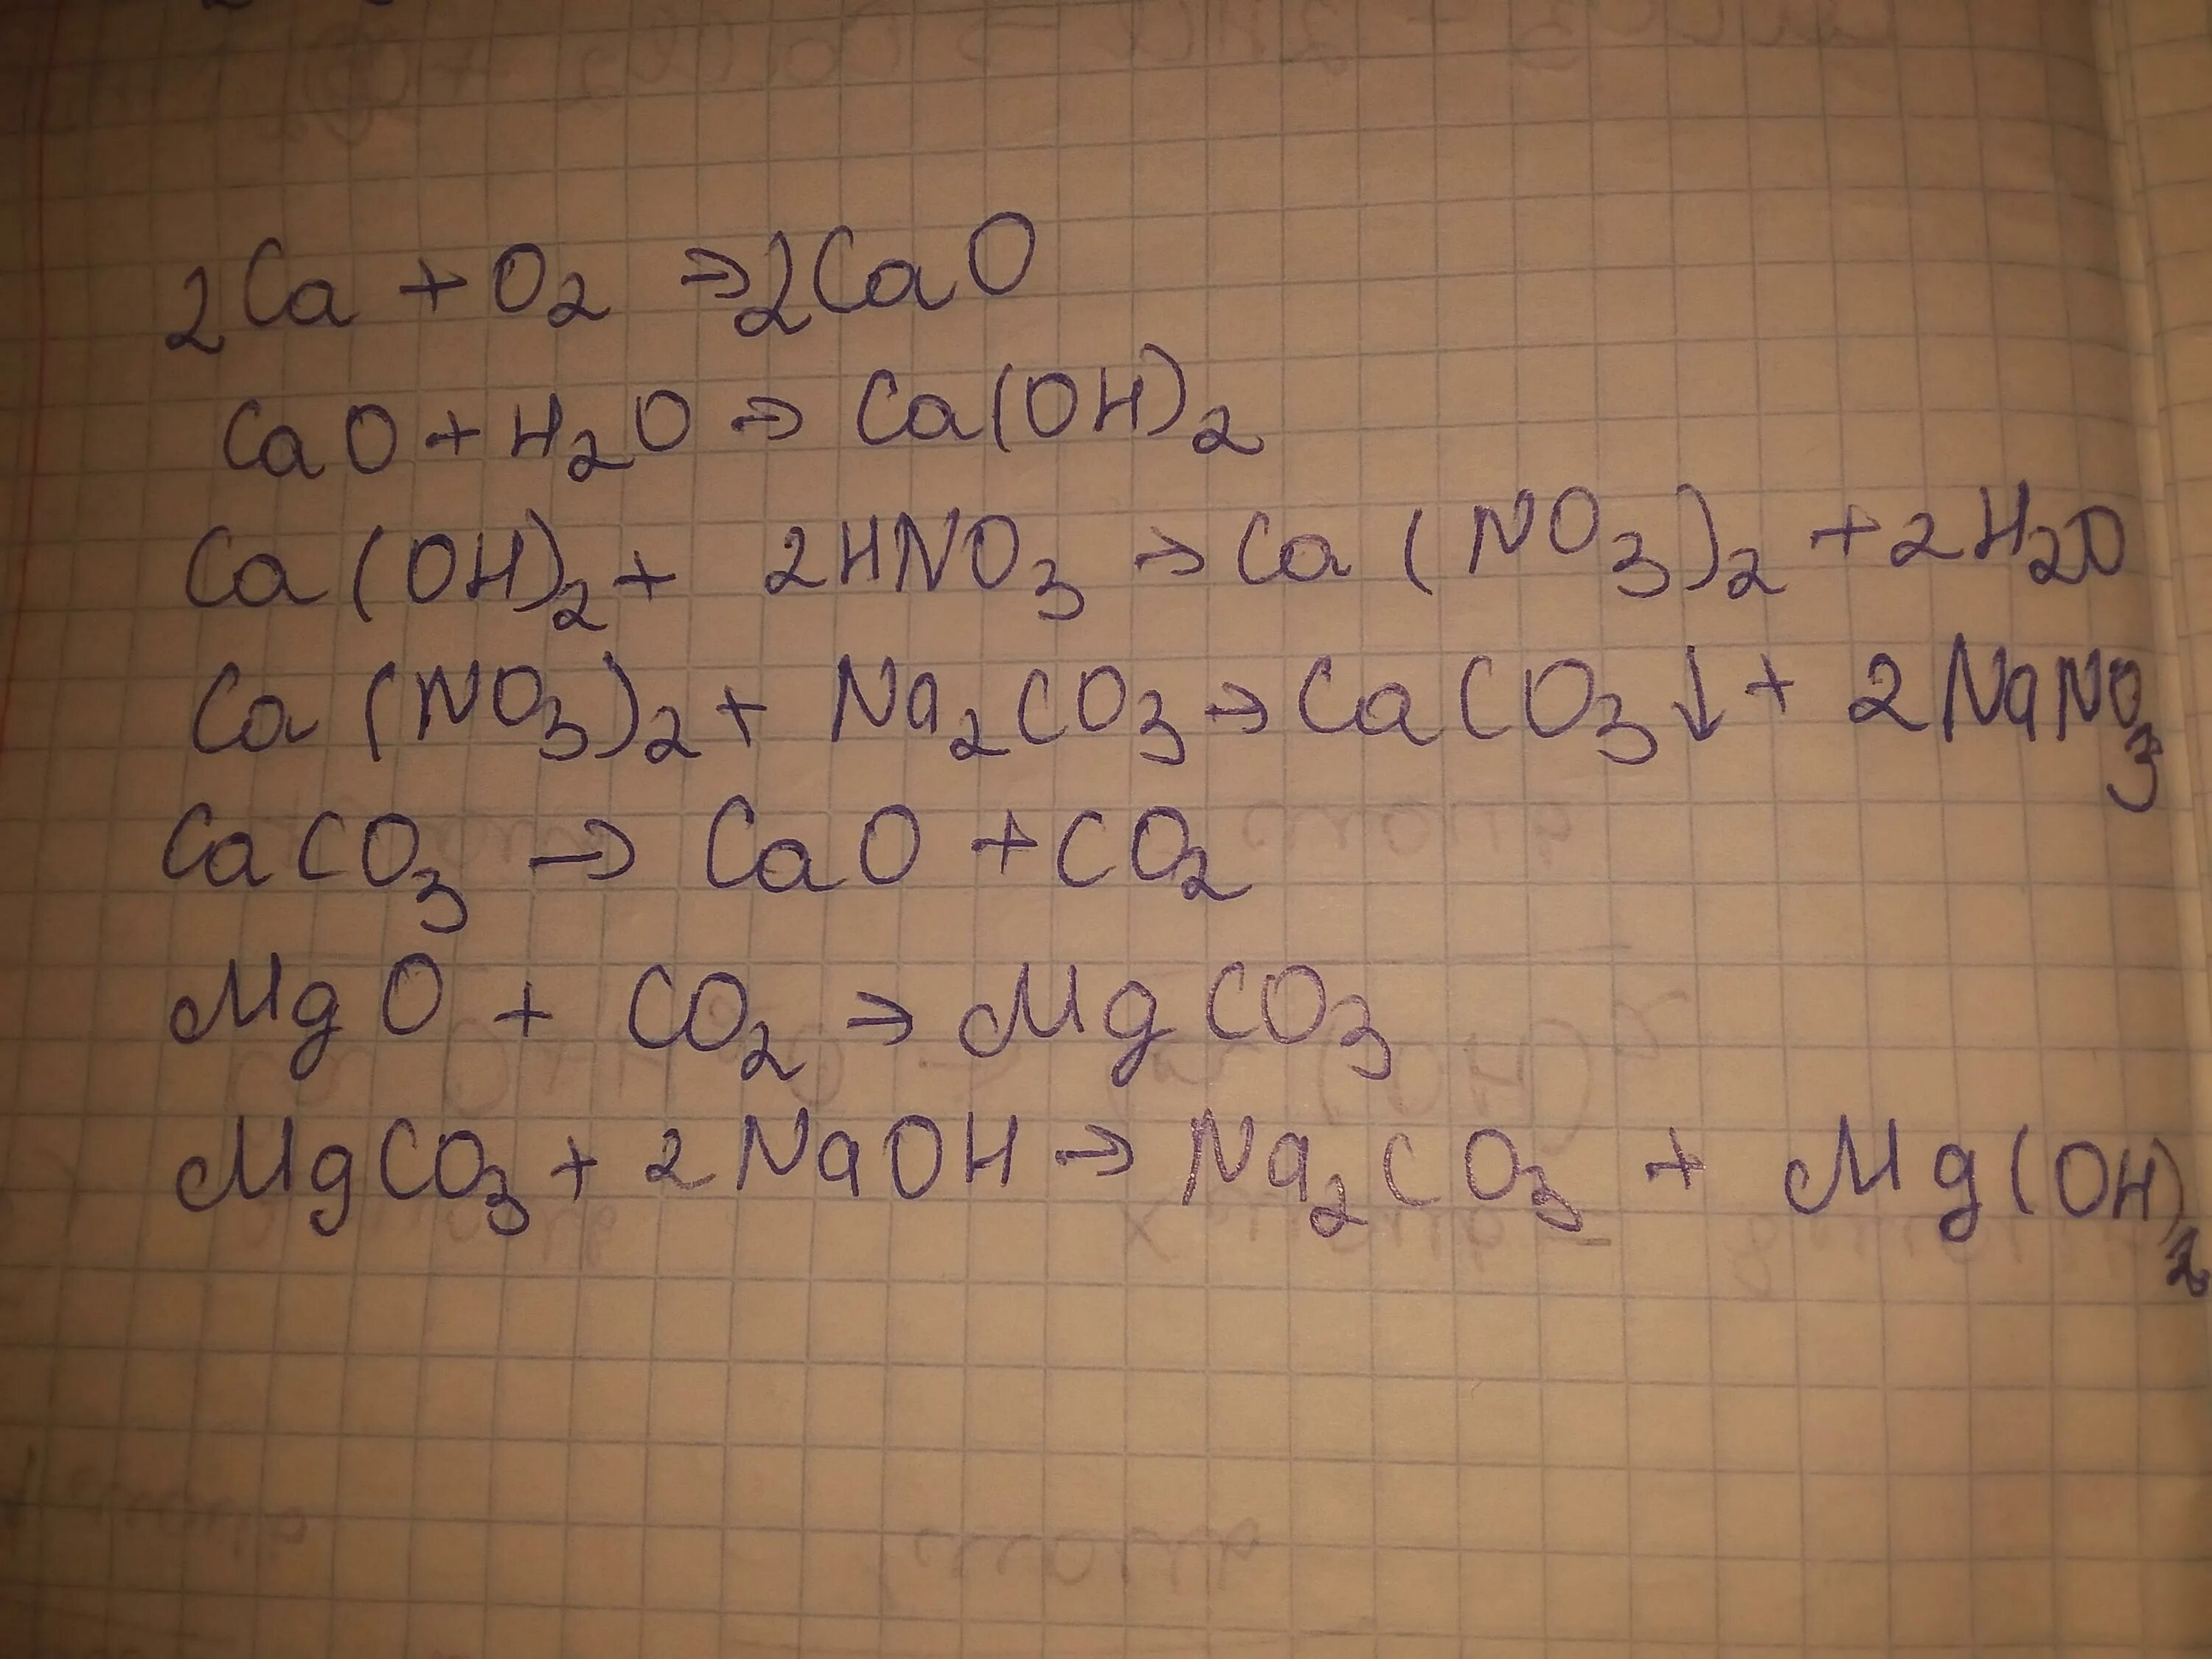 2Ca + O₂ → 2CaO
CaO + H₂O → Ca(OH)₂
Ca(OH)₂ + 2HNO₃ → Ca(NO₃)₂ + 2H₂O
Ca(NO₃)₂ + Na₂CO₃ → CaCO₃↓ + 2NaNO₃
CaCO₃ → CaO + CO₂
MgO + CO₂ → MgCO₃
MgCO₃ + 2NaOH → Na₂CO₃ + Mg(OH)₂